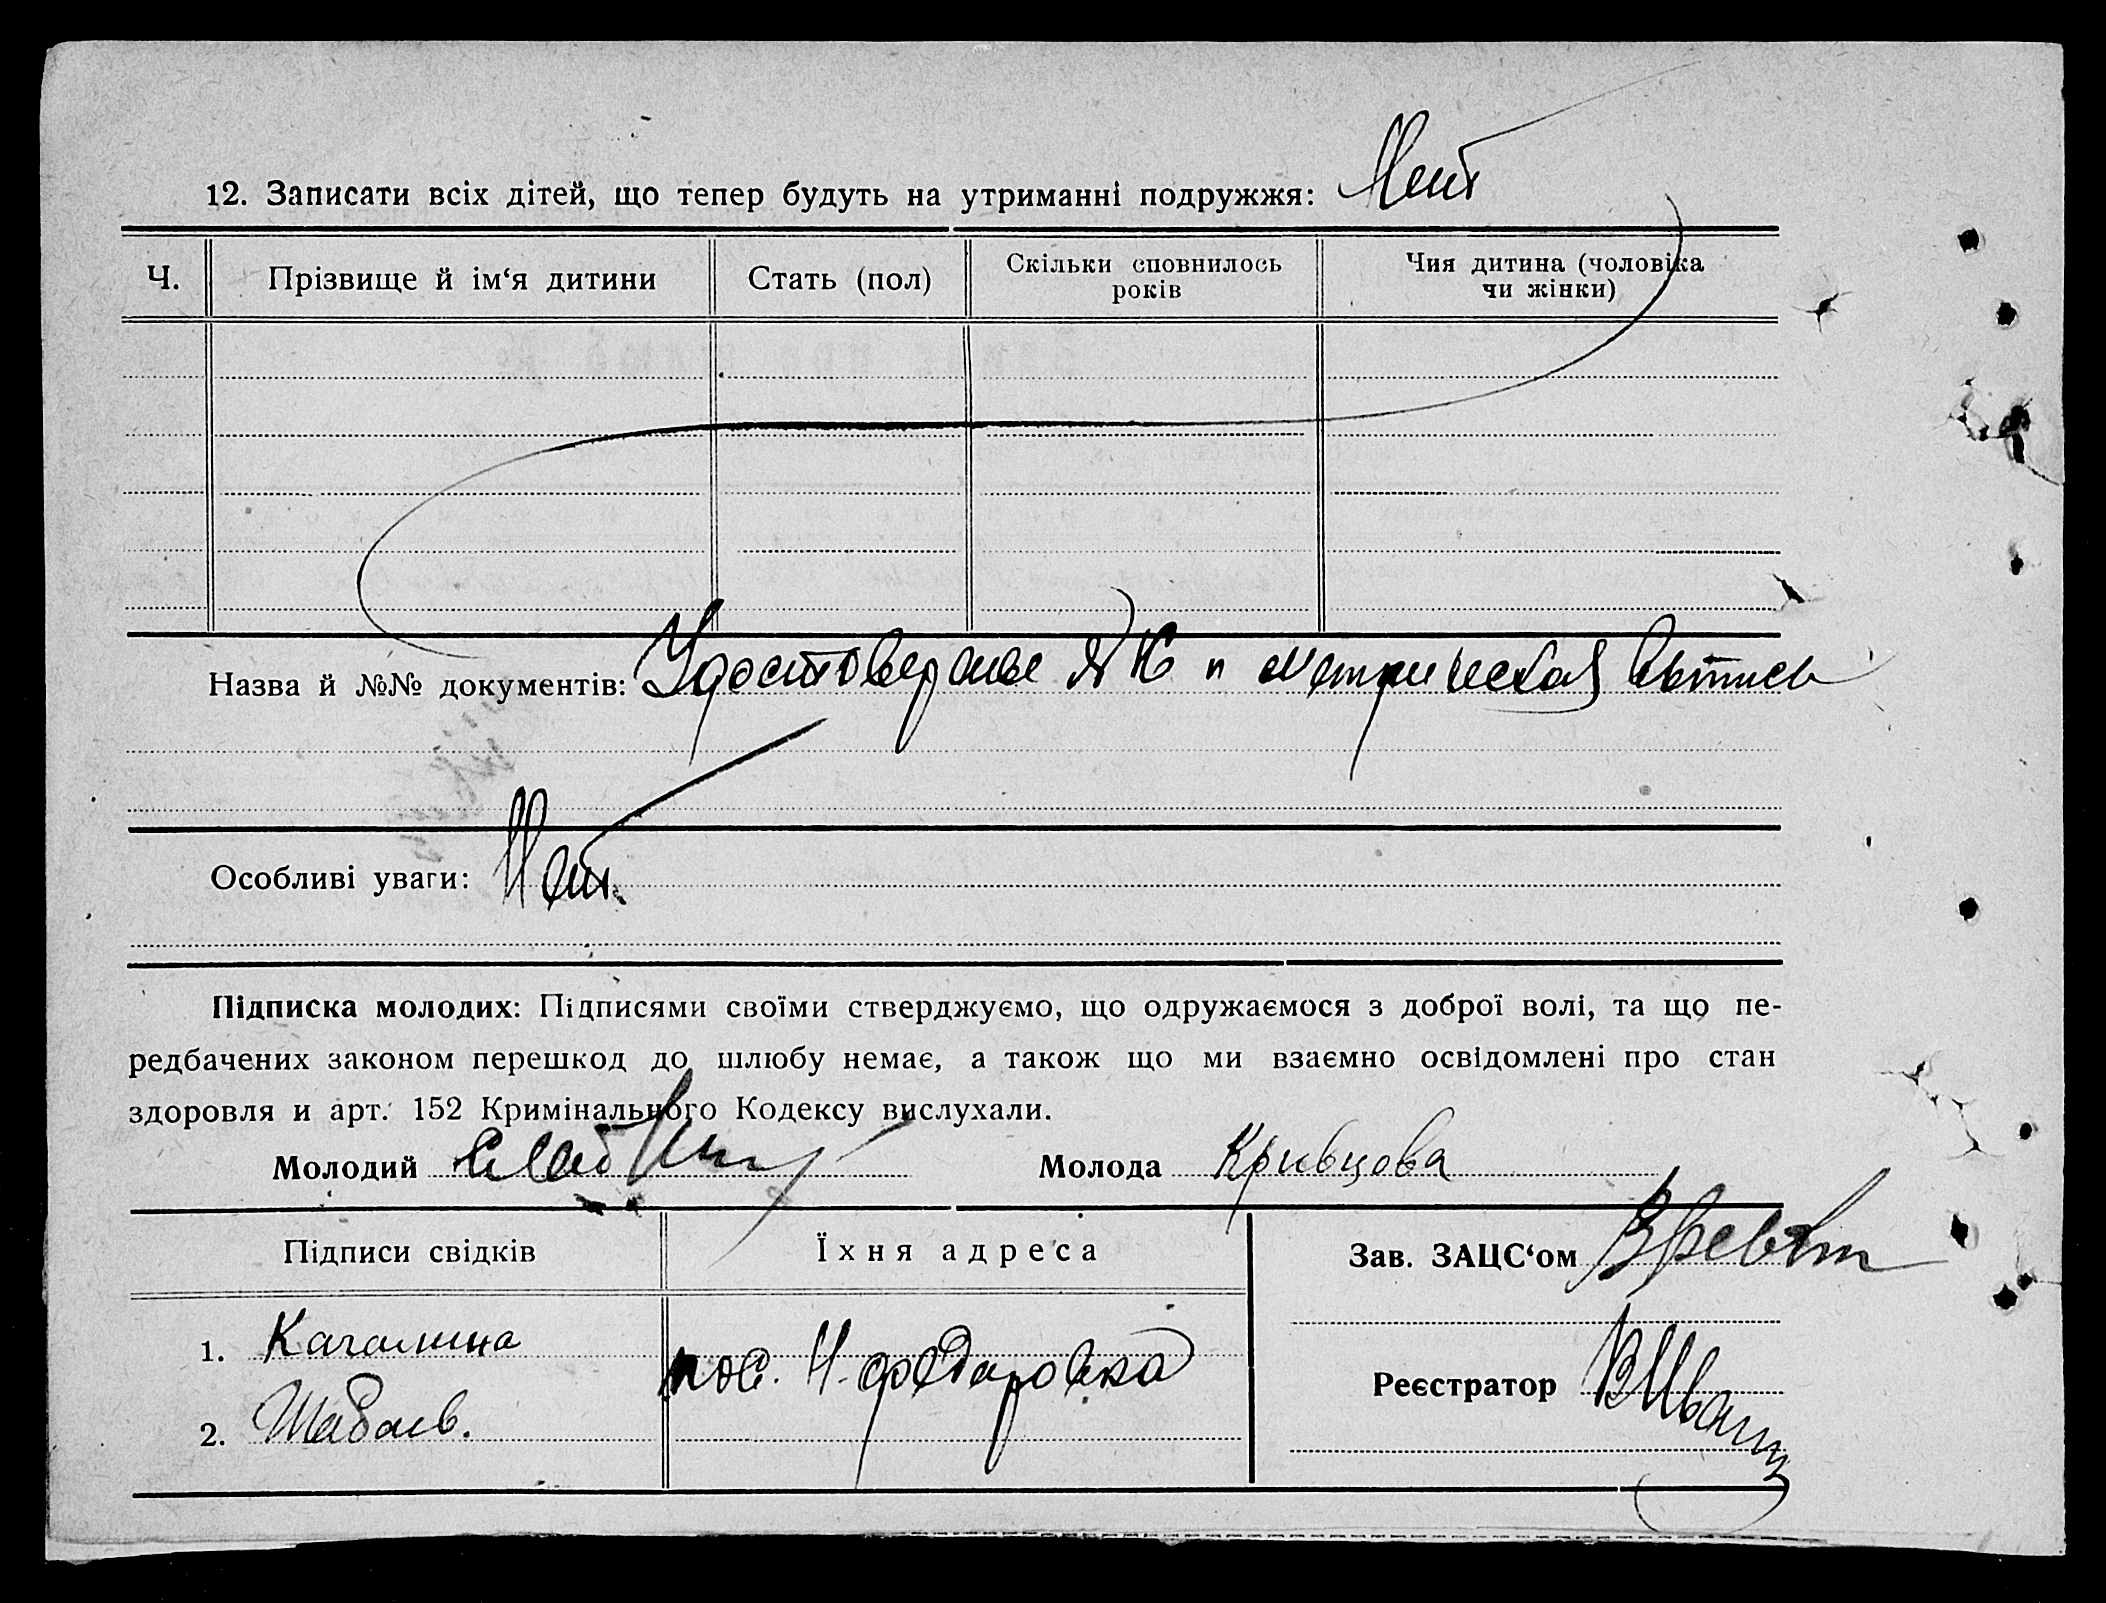 12. Записати всіх дітей, що тепер будуть на утриманні подружжя: Нет
Ч. Прізвище й ім‘я дитини Стать (пол) Скільки сповнилось років Чия дитина (чоловіка чи жінки)
Назва й №№ документів: Удостоверение ЯК и метрическая выпись
Особливі уваги: Нет.
Підписка молодих: Підписями своїми стверджуємо, що одружаємося з доброї волі, та що пе-
редбачених законом перешкод до шлюбу немає, а також що ми взаємно освідомлені про стан
здоровля и арт. 152 Кримінального Кодексу вислухали.
Молодий Молода Кривцова
Підписи свідків Їхня адреса Зав. ЗАЦС‘ом
1. Качалина пос. Н.
Реєстратор
2. Шабаев.